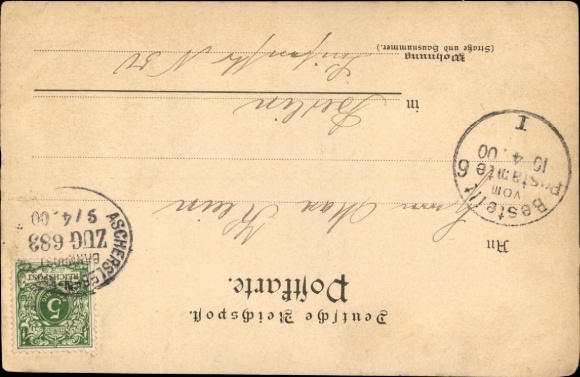 Deutsche Reichspost.
Postkarte.
An
Herrn Max
in Berlin
Wohnung N 30
(Straße und Hausnummer.)
REICHSPOST
5
ASCHERSLEBEN
BAHNPOST
ZUG 683
9/4.00
Bestellt
vom
Postamte 6
10.4.00
I